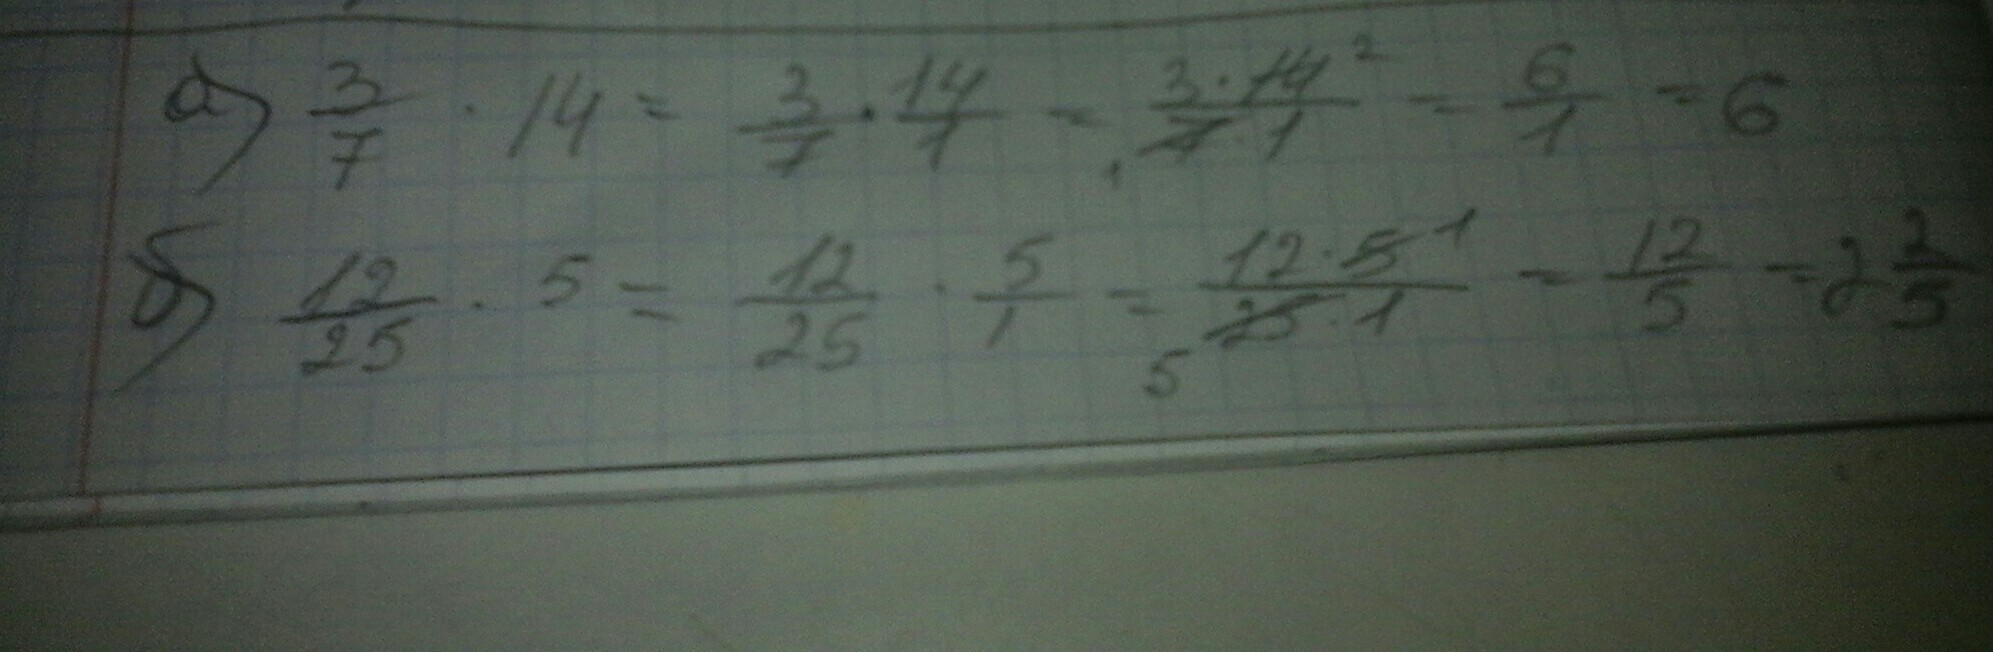 а) 3/7 · 14 = 3/7 · 14/1 = 3·14²/₁7·1 = 6/1 = 6
б) 12/25 · 5 = 12/25 · 5/1 = 12·5¹/₅25·1 = 12/5 = 2 2/5